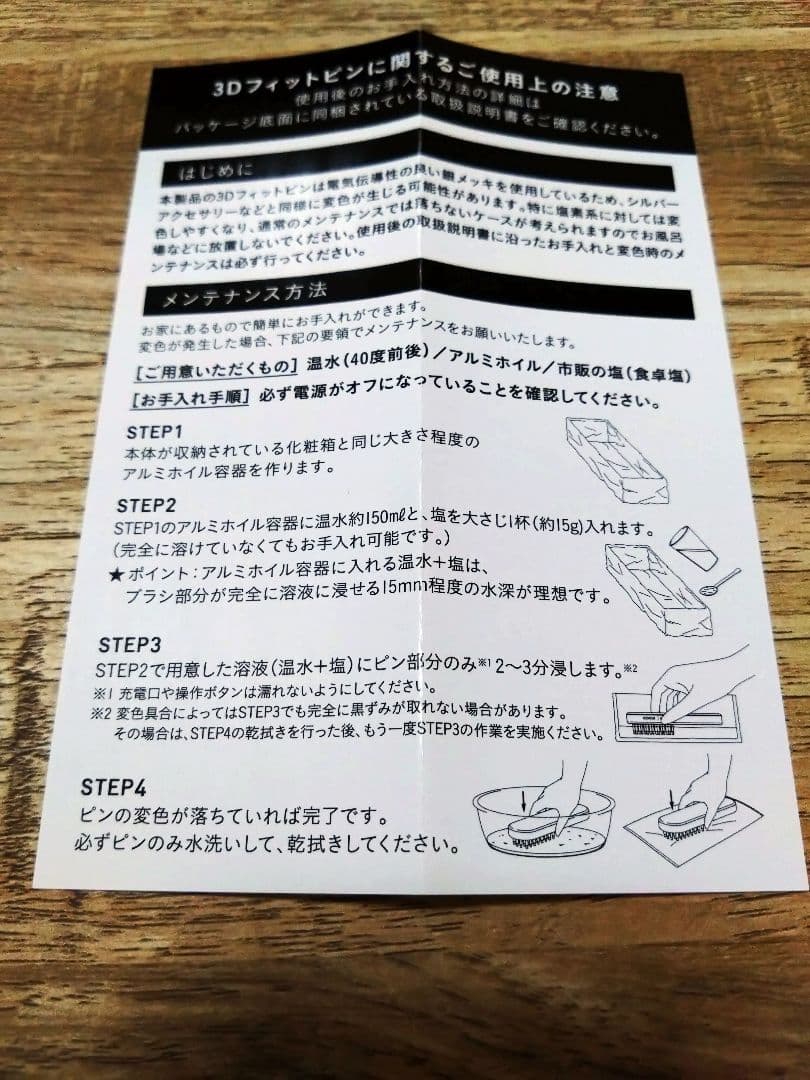 3Dフィットピンに関するご使用上の注意
使用後のお手入れ方法の詳細は
パッケージ底面に同梱されている取扱説明書をご確認ください。
はじめに
本製品の3Dフィットピンは電気伝導性の良い銀メッキを使用しているため、シルバー
アクセサリーなどと同様に変色が生じる可能性があります。特に塩素系に対しては変
色しやすくなり、通常のメンテナンスでは落ちないケースが考えられますのでお風呂
場などに放置しないでください。使用後の取扱説明書に沿ったお手入れと変色時のメ
ンテナンスは必ず行ってください。
メンテナンス方法
お家にあるもので簡単にお手入れができます。
変色が発生した場合、下記の要領でメンテナンスをお願いいたします。
[ご用意いただくもの] 温水(40度前後)/アルミホイル/市販の塩(食卓塩)
[お手入れ手順] 必ず電源がオフになっていることを確認してください。
STEP1
本体が収納されている化粧箱と同じ大きさ程度の
アルミホイル容器を作ります。
STEP2
STEP1のアルミホイル容器に温水約150mlと、塩を大さじ1杯(約15g)入れます。
(完全に溶けていなくてもお手入れ可能です。)
★ポイント:アルミホイル容器に入れる温水+塩は、
ブラシ部分が完全に溶液に浸せる15mm程度の水深が理想です。
STEP3
STEP2で用意した溶液(温水+塩)にピン部分のみ※1 2〜3分浸します。※2
※1 充電口や操作ボタンは濡れないようにしてください。
※2 変色具合によってはSTEP3でも完全に黒ずみが取れない場合があります。
その場合は、STEP4の乾拭きを行った後、もう一度STEP3の作業を実施ください。
STEP4
ピンの変色が落ちていれば完了です。
必ずピンのみ水洗いして、乾拭きしてください。